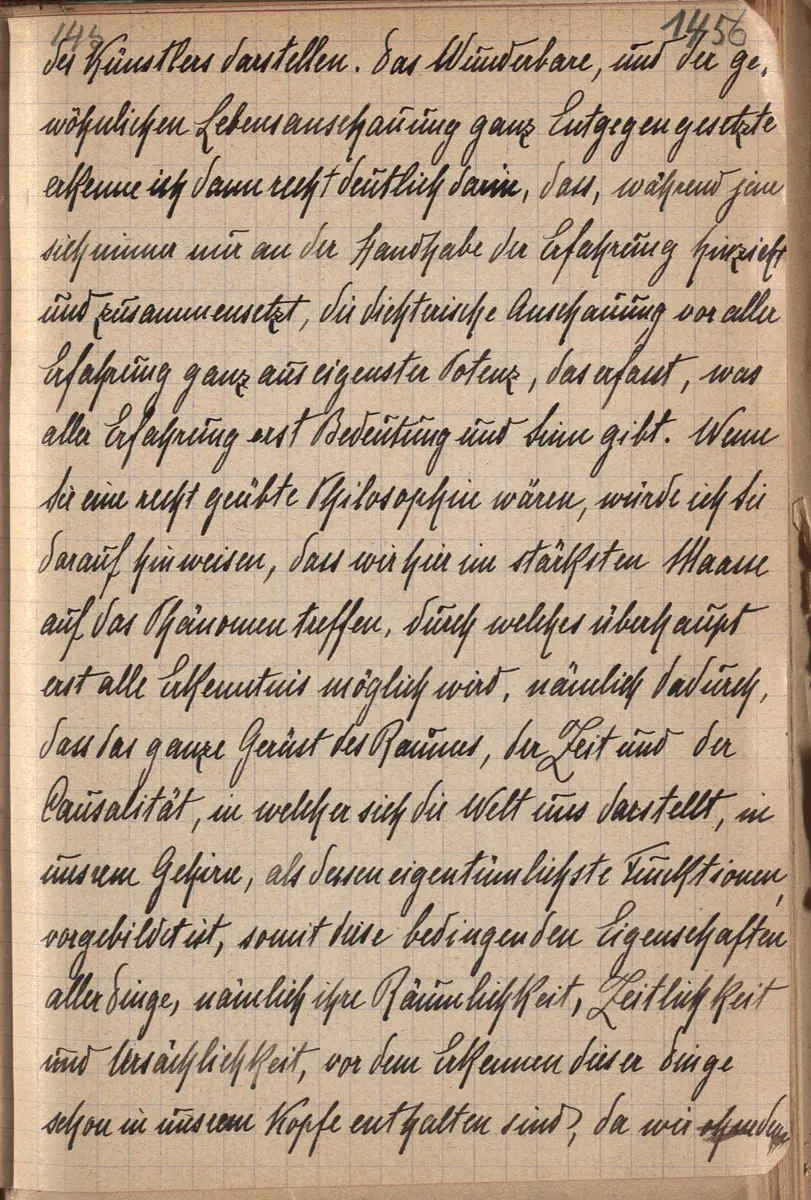 145 1456
des Künstlers darstellen. Das Wunderbare, und der ge-
wöhnlichen Lebensanschauung ganz Entgegengesetzte
erkenne ich dann recht deutlich darin, dass, während jene
sich immer nur an der Handhabe der Erfahrung hinzieht
und zusammensetzt, die dichterische Anschauung vor aller
Erfahrung ganz aus eigenster Potenz, das erfasst, was
aller Erfahrung erst Bedeutung und Sinn gibt. Wenn
Sie eine recht geübte Philosophin wären, würde ich Sie
darauf hinweisen, dass wir hier im stärksten Maasse
auf das Phänomen treffen, durch welches überhaupt
erst alle Erkenntnis möglich wird, nämlich dadurch,
dass das ganze Gerüst des Raumes, der Zeit und der
Causalität, in welcher sich die Welt uns darstellt, in
unsrem Gehirne, als dessen eigentümlichste Funcktionen,
vorgebildet ist, somit diese bedingenden Eigenschaften
aller Dinge, nämlich ihre Räumlichkeit, Zeitlichkeit
und Ursächlichkeit, vor dem Erkennen dieser Dinge
schon in unsrem Kopfe enthalten sind, da wir